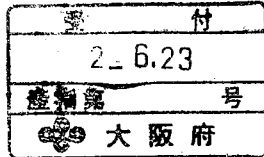 受付
2.6.23
第 号
大阪府